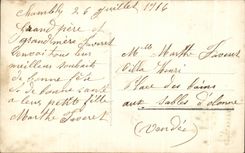 Chambly 26 Juillet 1916
Grand père et
grand mère Favoret
envoit tous les
meilleur souhait
de bonne fête
et de bonne santé
a leur petit fille
Marthe Favoret
Mlle Marthe Favoret
Villa Henri
Place des bains
aux sables d'olonne
(Vendée)